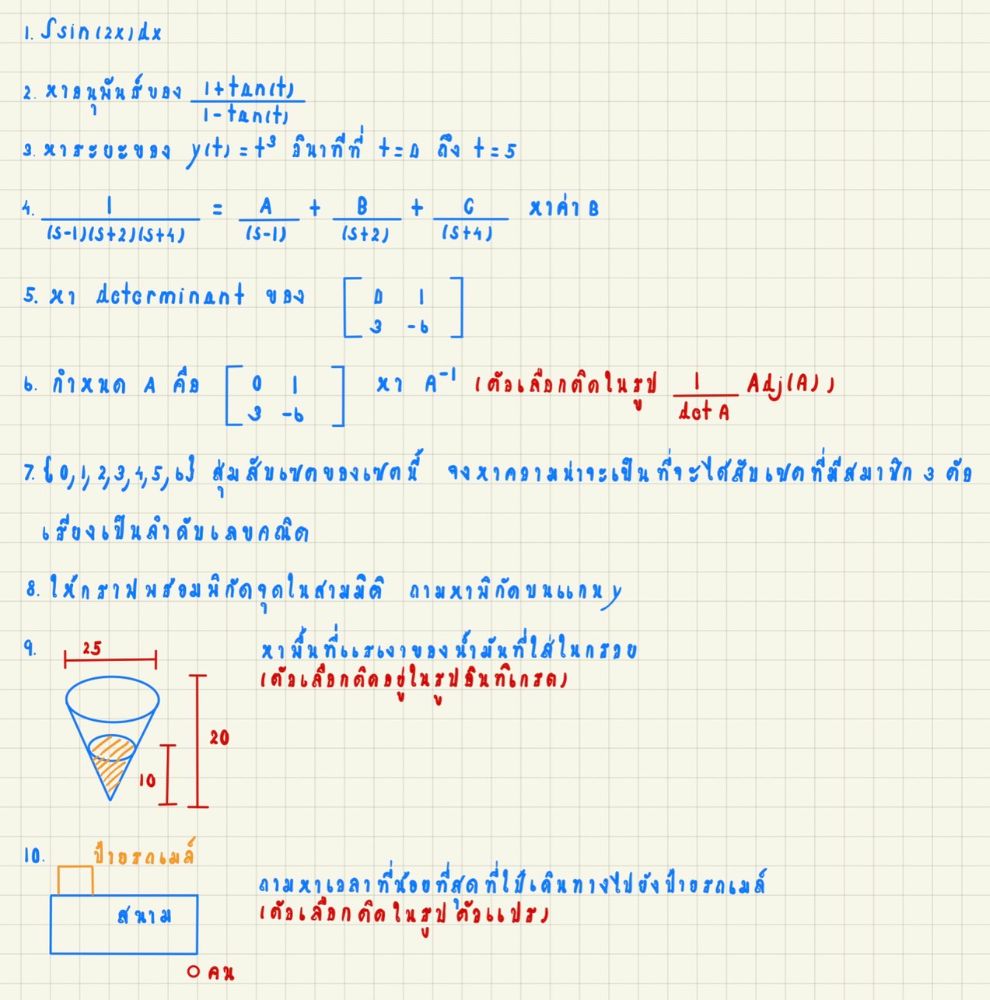 1. ∫sin(2x)dx
2. หาอนุพันธ์ของ (1+tan(t))/(1-tan(t))
3. หาระยะของ y(t) = t³ วินาทีที่ t=0 ถึง t=5
4. 1/((s-1)(s+2)(s+4)) = A/(s-1) + B/(s+2) + C/(s+4) หาค่า B
5. หา determinant ของ [0 1
3 -6]
6. กำหนด A คือ [0 1 หา A⁻¹ (ตัวเลือกติดในรูป 1/(det A) Adj(A))
3 -6]
7. {0,1,2,3,4,5,6} สุ่มสับเซตของเซตนี้ จงหาความน่าจะเป็นที่จะได้สับเซตที่มีสมาชิก 3 ตัว
เรียงเป็นลำดับเลขคณิต
8. ให้กราฟพร้อมพิกัดจุดในสามมิติ ถามหาพิกัดบนแกน y
9. 25 หาพื้นที่แรเงาของน้ำมันที่ใส่ในกรวย
(ตัวเลือกติดอยู่ในรูปอินทิเกรต)
20
10
10. ป้ายรถเมล์
ถามหาเวลาที่น้อยที่สุดที่ใช้เดินทางไปยังป้ายรถเมล์
สนาม (ตัวเลือกติดในรูปตัวแปร)
คน